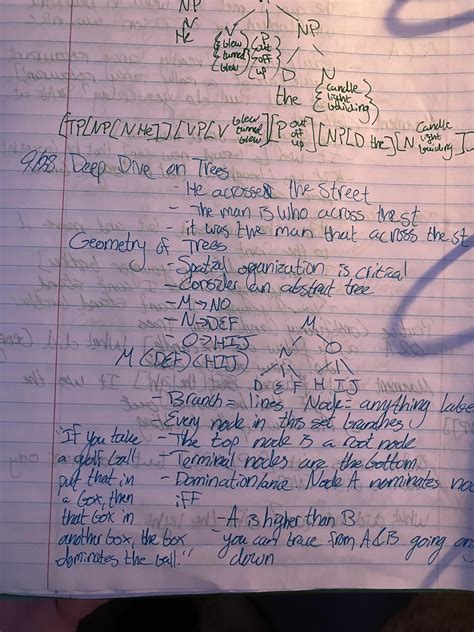 NP
N
NP
He
{blew turned blew} {P out off up}
D N
the {candle light building}
[TP[NP[N He]][VP[V blew turned blew][P out off up][NP[D the][N candle light building]
9/28 Deep Dive on Trees
- He acrossed the street
- The man is who across the st
- it was the man that across the st
Geometry of Trees
- Spatial organization is critical
- Consider an abstract tree
- M→NO
- N→DEF
- O→HIJ
M
N O
D E F H I J
M(DEF)(HIJ)
- Branch = lines Node = anything label
- Every node in this set branches
- The top node is a root node
- Terminal nodes are the bottom
- Domination Node A nominates
iff
- A is higher than B
- you can trace from A&B going on
down
"If you take
a golf ball
put that in
a box, then
that box in
another box, the box
dominates the ball."